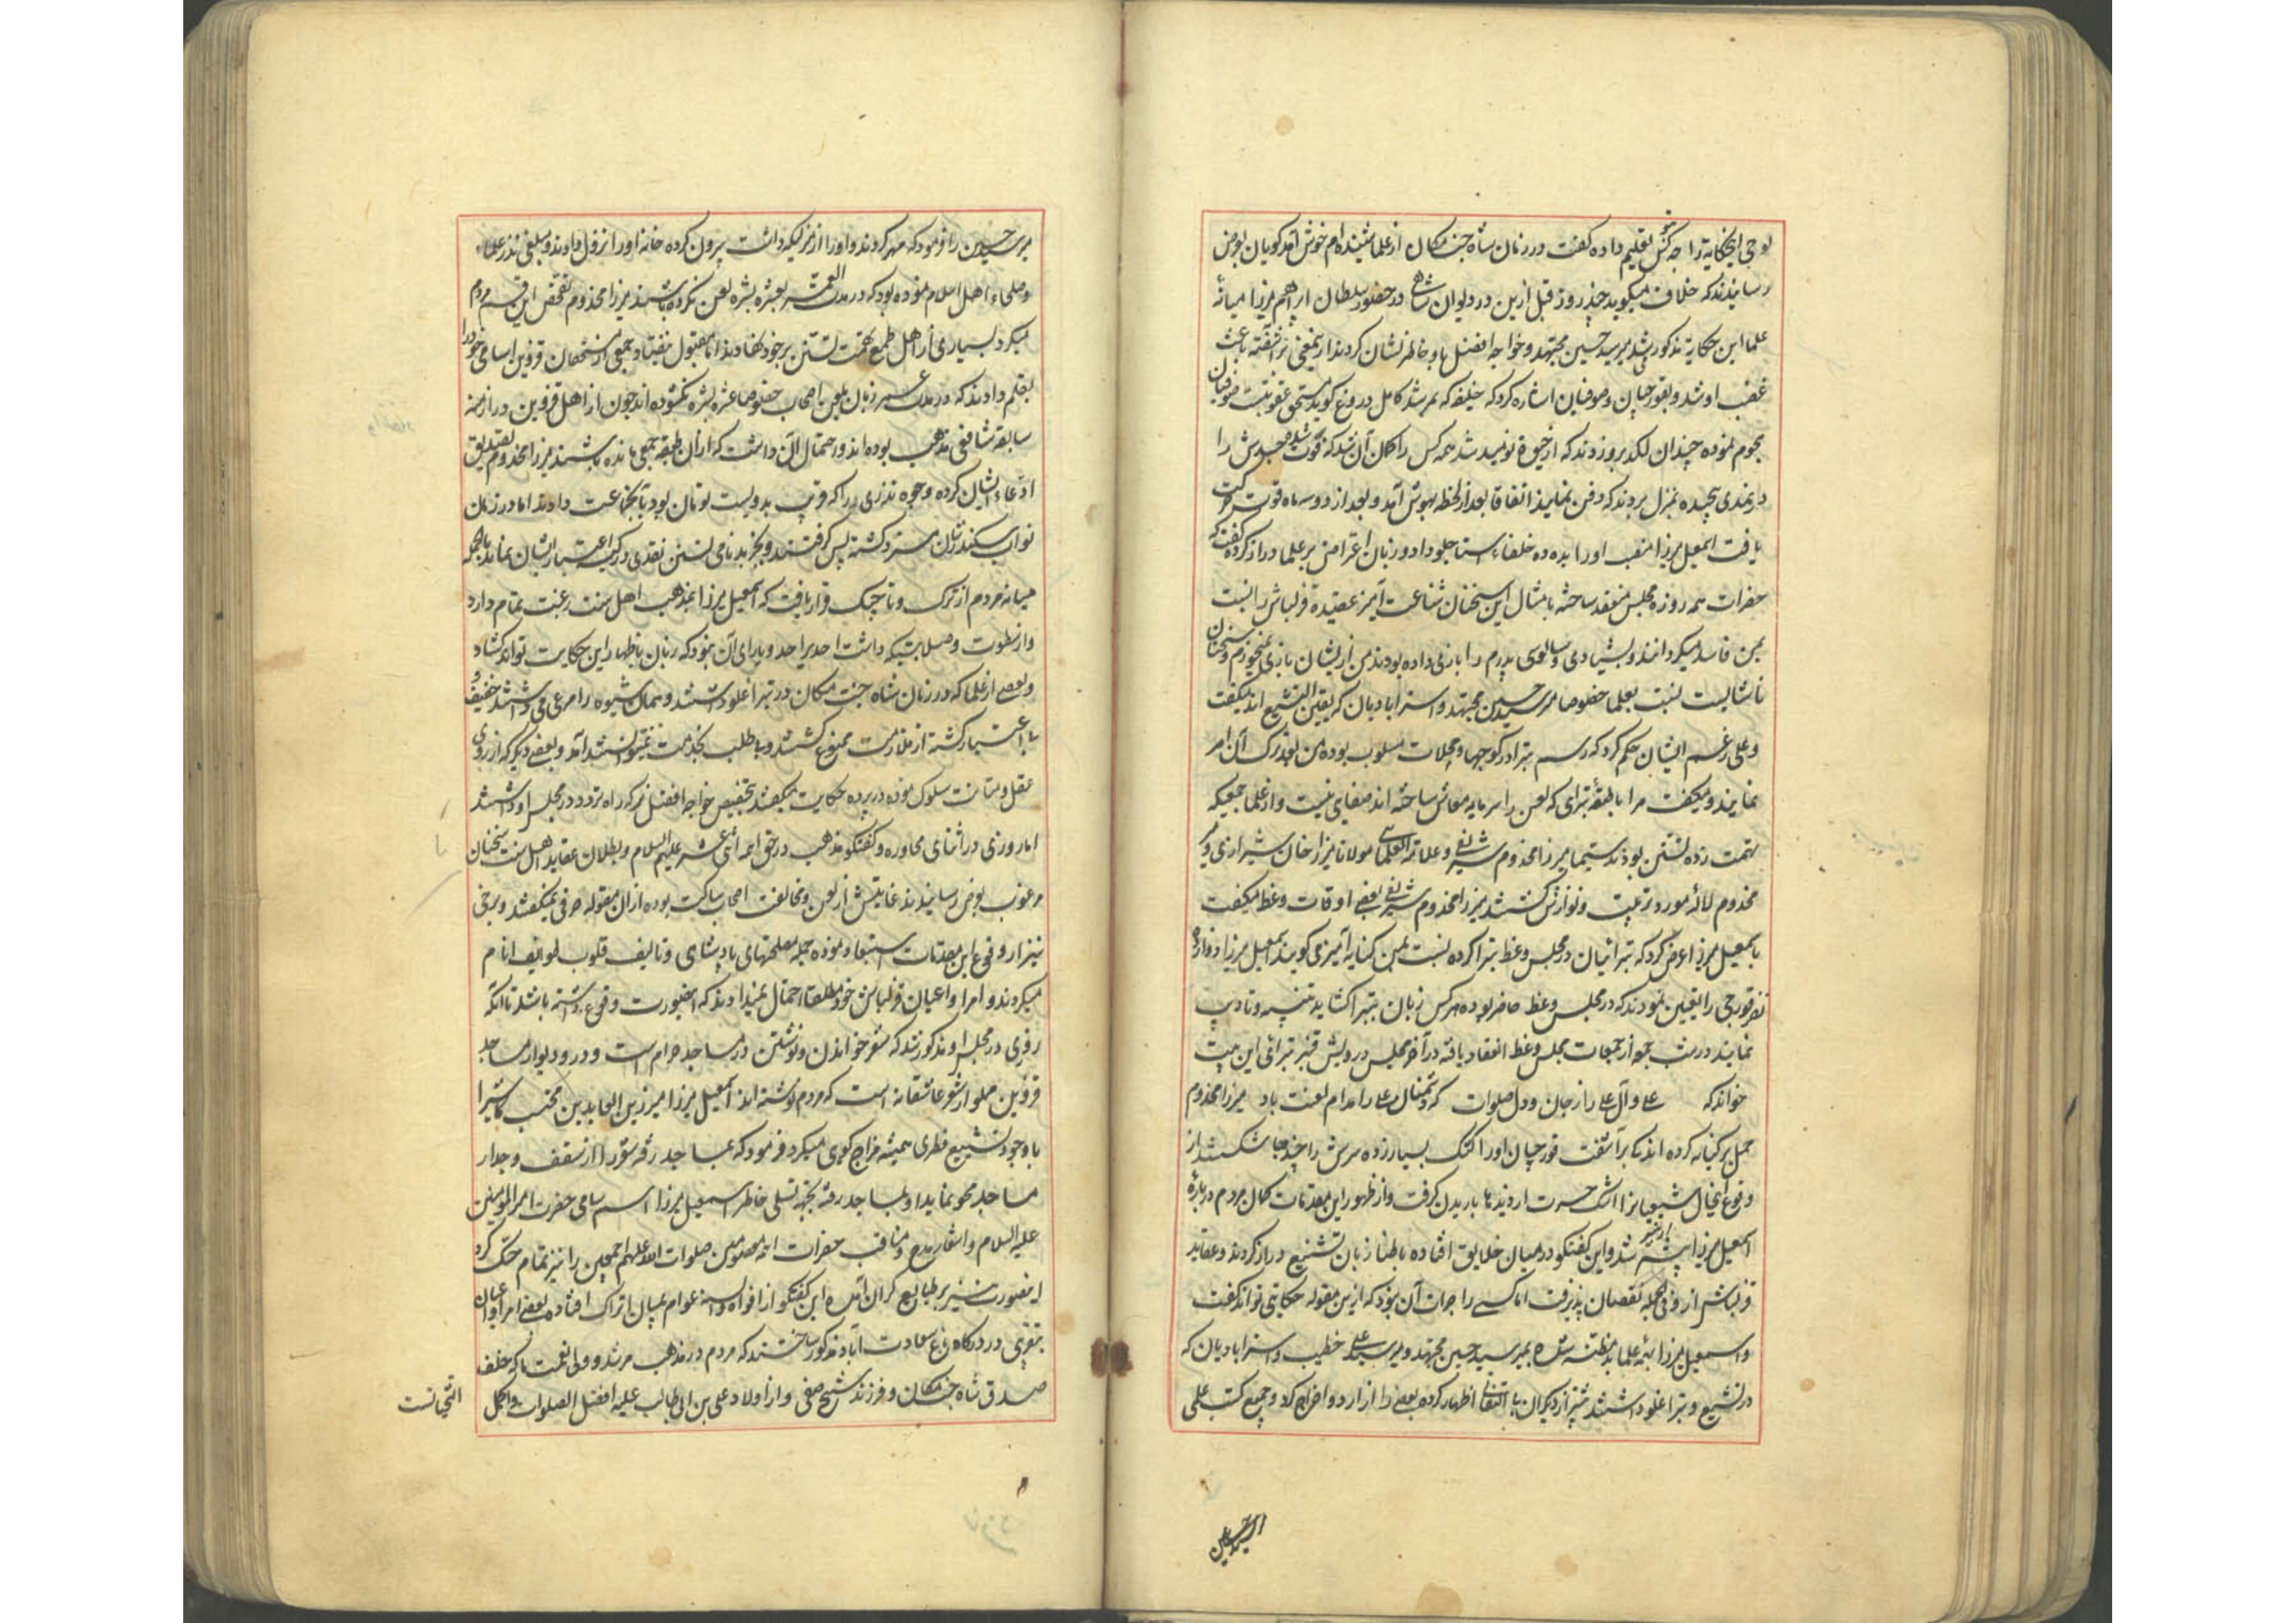 بوحی اینحکایة را چه کس بتو تعلیم داده گفت در زمان شاه جنت مکان از علما شنیده‌ام خوش آمد گویان بعرض
رسانیدند که خلاف میگوید چند روز قبل ازین در دیوان شاهی در حضور سلطان ابراهیم میرزا میانهٔ
علما این حکایة مذکور شد میر سید حسین مجتهد و خواجه افضل باو خاطر نشان کردند ازینمعنی برآشفته باعث
غضب او شد و بقورچیان و صوفیان اشاره کرد که خلیفه که بمرشد کامل دروغ گوید مستحق عقوبتست صوفیان
هجوم نموده چندان لکد برو زدند که از حیوة نومید شد همه کس را کمان آن شد که فوت شده جسدش را
در نمدی پیچیده بمنزل بردند که دفن نمایند اتفاقا بعد از لحظهٔ بهوش آمد و بعد از دو سه ماه قوت حرکت
یافت اسمعیل میرزا منصب او را بده ده خلفاء استاجلو داد و زبان اعتراض بر علما دراز کرده گفت که
حضرات همه روزه مجلس منعقد ساخته بامثال این سخنان شناعت آمیز عقیدهٔ قزلباش را نسبت
بمن فاسد میکردانند و بشیادی و سالوسی پدرم را بازی داده بودند من از ایشان بازی نمیخورم و سخنان
ناشایست نسبت بعلما خصوصا میر سید حسین مجتهد و استرابادیان که بیقین التشیع اند میگفت
و علی رغم ایشان حکم کرد که رسم تبرا در کوچها و محلات مسلوب بوده من بعد ترک آن امر
نمایند و میگفت مرا با طبقهٔ تبرای که لعن را سرمایه معاش ساخته اند صفای نیست و از علما جمعیکه
بتهمت زده تسنن بودند سیما میرزا مخدوم شریفی و علامة العلمائی مولانا میرزا جان شیرازی و میر
مخدوم لاله مورد تربیت و نوازش گشتند میرزا مخدوم شریفی بعضی اوقات وعظ میگفت
باسمعیل میرزا عرض کرد که تبرائیان در مجلس وعظ تبرا کرده نسبت بمن کنایه آمیز می گویند اسمعیل میرزا دوازده
نفر قورچی را تعیین نمودند که در مجلس وعظ حاضر بوده هر کس زبان بتبرا گشاید تنبیه و تادیب
نمایند در شب جمعه از جمعات مجلس وعظ انعقاد یافته در آخر مجلس درویش قنبر تبرائی این بیت
خواند که علی و آل علی را ز جان و دل صلوات که دشمنان علی را مدام لعنت باد میرزا مخدوم
حمل بر کنایه کرده اندکی برآشفت قورچیان او را کتک بسیار زده سرش را چند جا شکستند از
وقوع اینحال شیعیانرا اشک حسرت از دیدها باریدن گرفت و از ظهور این مقدمات کمان مردم دربارهٔ
اسمعیل میرزا بیشتر شد و این گفتگو در میان خلایق افتاده باطنا زبان تشنیع دراز کردند و عقاید
قزلباش ازو فی الجمله نقصان پذیرفت اما کسی را جرأت آن نبود که ازین مقوله حکایتی تواند گفت
و اسمعیل میرزا بتهٔ علما بدمظنه شده بمیر سید حسین مجتهد و میر سید علی خطیب و استرابادیان که
در تشیع و تبرا غلو داشتند بیشتر از دیگران بی التفاتی اظهار کرده بعضی را از اردو اخراج کرد و جمیع کتب علمی
میر سید حسین را فرمود که مهر کردند و او را از منزلیکه داشت بیرون کرده خانهٔ او را نزول دادند و مبلغی نذر علماء
و صلحاء اهل اسلام نموده بود که در مدت العمر بعشره مبشره لعن نکرده باشند میرزا مخدوم تفحص این قسم مردم
میکرد بسیاری از اهل طمع تهمت تسنن بر خود نهادند اما مقبول نیفتاد و جمعی از مستحقان قزوین اسامی خود را
بقلم دادند که در مدت عمر زبان بلعن اصحاب خصوصا عشره مبشره نکشوده اند چون از اهل قزوین در ازمنه
سابقه شافعی مذهب بوده اند و احتمال آن داشت که از آن طبقه جمعی مانده باشند میرزا مخدوم تصدیق
ادعاء ایشان کرده و وجوه نذری را که قریب بدویست تومان بود بآنجماعت دادند اما در زمان
نواب سکندر شان مسترد گشته پس گرفتند و بجز بدنامی تسنن نقدی در کیسه اعتبار ایشان نماند بالجمله
میانه مردم از ترک و تاجیک قرار یافت که اسمعیل میرزا بمذهب اهل سنت رغبت تمام دارد
و از سطوت و صلابتیکه داشت احدی را حد و یارای آن نبود که زبان باظهار این حکایت تواند گشاد
و بعضی از علما که در زمان شاه جنت مکان در تبرا غلو داشتند و همان شیوه را مرعی می داشتند خفیف و
بی اعتبار گشته از ملازمت ممنوع گشتند و بی طلب بخدمت نمیتوانستند آمد و بعضی دیگر که از روی
عقل و متانت سلوک نموده در پرده حکایت میگفتند بتخصیص خواجه افضل ترکه راه تردد در مجلس او داشتند
اما روزی در اثنای محاوره و گفتگو مذهب در حق ائمه اثنی عشر علیهم السلام و بطلان عقاید اهل سنت سخنان
مرغوب بعرض رسانیدند غایتش از لعن و مخالفت اصحاب ساکت بوده از آن مقوله حرفی نمیگفتند و برخی
نیز از وقوع این مقدمات استبعاد نموده حمله مصلحتهای پادشاهی و تالیف قلوب طوایف انام
میکردند و امرا و اعیان قزلباش خود مطلقا احتمال نمیدادند که اینصورت وقوع داشته باشد تا آنکه
روزی در مجلس او مذکور شد که شعر خواندن و نوشتن در مساجد حرام است و در و دیوار مساجد
قزوین مملو از شعر عاشقانه است که مردم نوشته اند اسمعیل میرزا میر زین العابدین محتسب کاشی را
با وجود تشیع فطری همیشه مزاح گوی میکرد فرمود که بمساجد رفته شعر را از سقف و جدار
مساجد محو نماید او بمساجد رفته بجهة تسلی خاطر اسمعیل میرزا اسم سامی حضرت امیر المؤمنین
علیه السلام و اشعار مدح و مناقب حضرات ائمه معصومین صلوات الله علیهم اجمعین را نیز تمام حک کرد
اینصورت نیز بر طبایع گران آمده این گفتگو از افواه و السنه عوام بمیان اتراک افتاده بعضی امرا و اعیان
بتقریبی در درگاه باغ سعادت آباد مذکور ساختند که مردم در مذهب مرشد و ولی نعمت ما که خلف
صدق شاه جنت مکان و فرزند شیخ صفی و از اولاد علی بن ابی طالب علیه افضل الصلوات و اکمل
التحیاتست